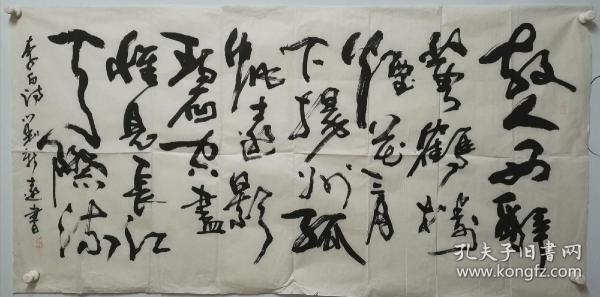 故人西辭
黄鶴樓
煙花三月
下揚州孤
帆遠影
碧空盡
惟見長江
天際流
李白诗 書
孔夫子旧书网
www.kongfz.com